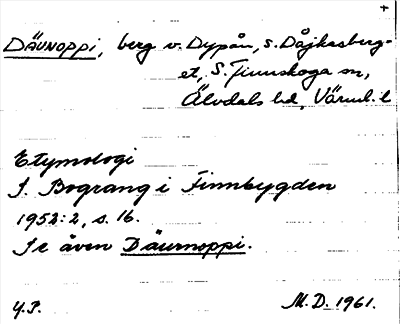 +
Däunoppi, berg v. Dypån, s. Dåjkasberg-
et, S. Finnskoga sn,
Älvdals hd, Värml. l
Etymologi
J. Bograng i Finnbygden
1952:2, s. 16.
Se även Däurnoppi.
Y.P. M.D. 1961.